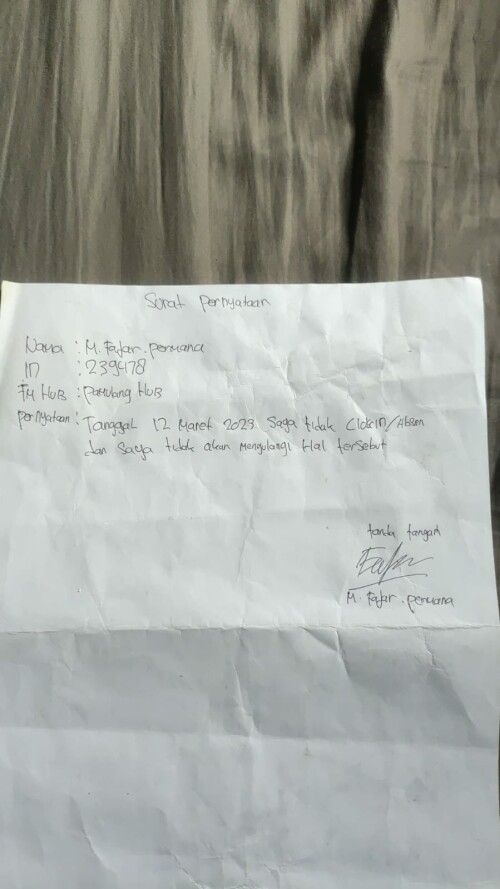 Surat pernyataan
Nama : M. Fajar. permana
ID : 239478
FM HUB : pamulang HUB
pernyataan : Tanggal 12 Maret 2023 saya tidak Clokin/Absen
dan saya tidak akan mengulangi Hal tersebut
tanda tangan
Fajar
M. Fajar. permana